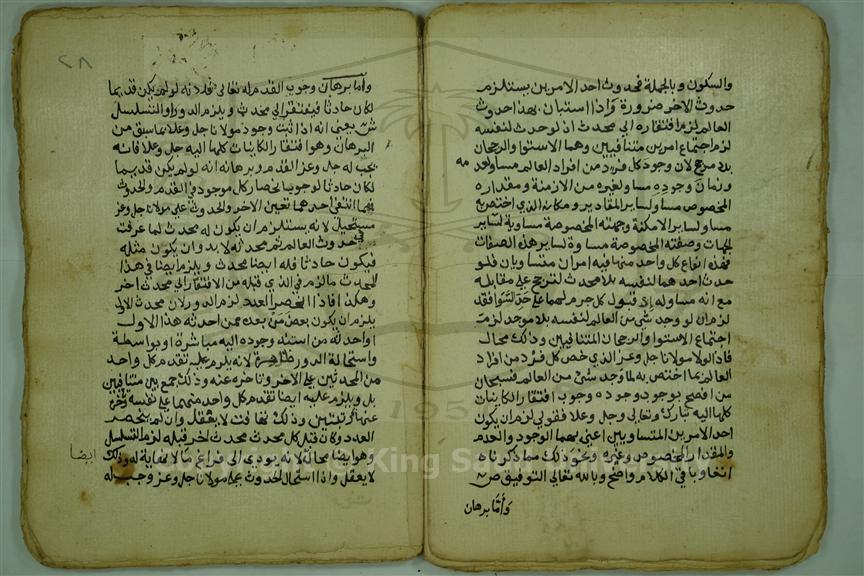 والسكون وبالجملة فحدوث احد الامرين يستلزم
حدوث الاخر ضرورة واذا استبان بهذا حدوث
العالم لزم افتقاره الي محدث اذ لو حدث لنفسه
لزم اجتماع امرين متنافيين وهما الاستوا والرجحان
بلا مرجح لان وجود كل فرد من افراد العالم مساو لعدمه
وزمان وجوده مساو لغيره من الازمنة ومقداره
المخصوص مساو لساير المقادير ومكانه الذي اختص به
مساو لساير الامكنة وجهته المخصوصة مساوية لساير
الجهات وصفته المخصوصة مساوة لساير هذه الصفات
فهذه انواع كل واحد منها فيه امران متساويان فلو
حدث احدهما لنفسه بلا محدث لترجح علي مقابله
مع انه مساو له اذ قبول كل جرم لهما علي حد السوا فقد
لزم ان لو وجد شي من العالم لنفسه بلا موجد لزم
اجتماع الاستوا والرجحان المتنافيين وذلك محال
فاذا لولا مولانا جل وعز الذي خص كل فرد من افراد
العالم بما اختص به لما وجد شي من العالم فسبحان
من افصح بوجود وجوده وجوب افتقار الكاينات
كلها اليه تبارك وتعالي وجل وعلا فقولي لزم ان يكون
احد الامرين المتساويين اعني بهما الوجود والعدم
والمقدار المخصوص وغيره ونحو ذلك مما ذكرناه
انفا وباقي الكلام واضح وبالله تعالي التوفيق ص
واما برهان
٢٨
واما برهان وجوب القدم له تعالي فلانه لو لم يكن قديما
لكان حادثا فيفتقر الي محدث ويلزم الدور او التسلسل
ش يعني انه اذا ثبت وجود مولانا جل وعلا بما سبق من
البرهان وهو افتقار الكاينات كلها اليه جل وعلا فانه
يجب له جل وعز القدم وبرهانه انه لو لم يكن قديما
لكان حادثا لوجوب انحصار كل موجود في القدم والحدوث
فمهما انتفي احدهما تعين الاخر والحدوث علي مولانا جل وعز
مستحيل لانه يستلزم ان يكون له محدث لما عرفت
في حدوث العالم ثم محدثه لا بد وان يكون مثله
فيكون حادثا فله ايضا محدث ويلزم ايضا في هذا
المحدث ما لزم في الذي قبله من الافتقار الي محدث اخر
وهكذا فاذا انحصر العدد لزم الدور لان محدث الاول
يلزم ان يكون بعض من بعده ممن احدثه هذا الاول
او احدثه من استند وجوده اليه مباشرة او بواسطة
واستحالة الدور ظاهرة لانه يلزم عليه تقدم كل واحد
من المحدثين علي الاخر وتاخره عنه وذلك جمع بين متنافيين
بل ويلزم عليه ايضا تقدم كل واحد منهما علي نفسه وتاخره
عنها بمرتبتين وذلك تهافت لا يعقل وان لم ينحصر
العدد وكان قبل كل محدث محدث اخر قبله لزم التسلسل
وهو ايضا محال لانه يودي الي فراغ ما لا نهاية له وذلك ايضا
لا يعقل واذا استحال الحدوث علي مولانا جل وعز وجب له